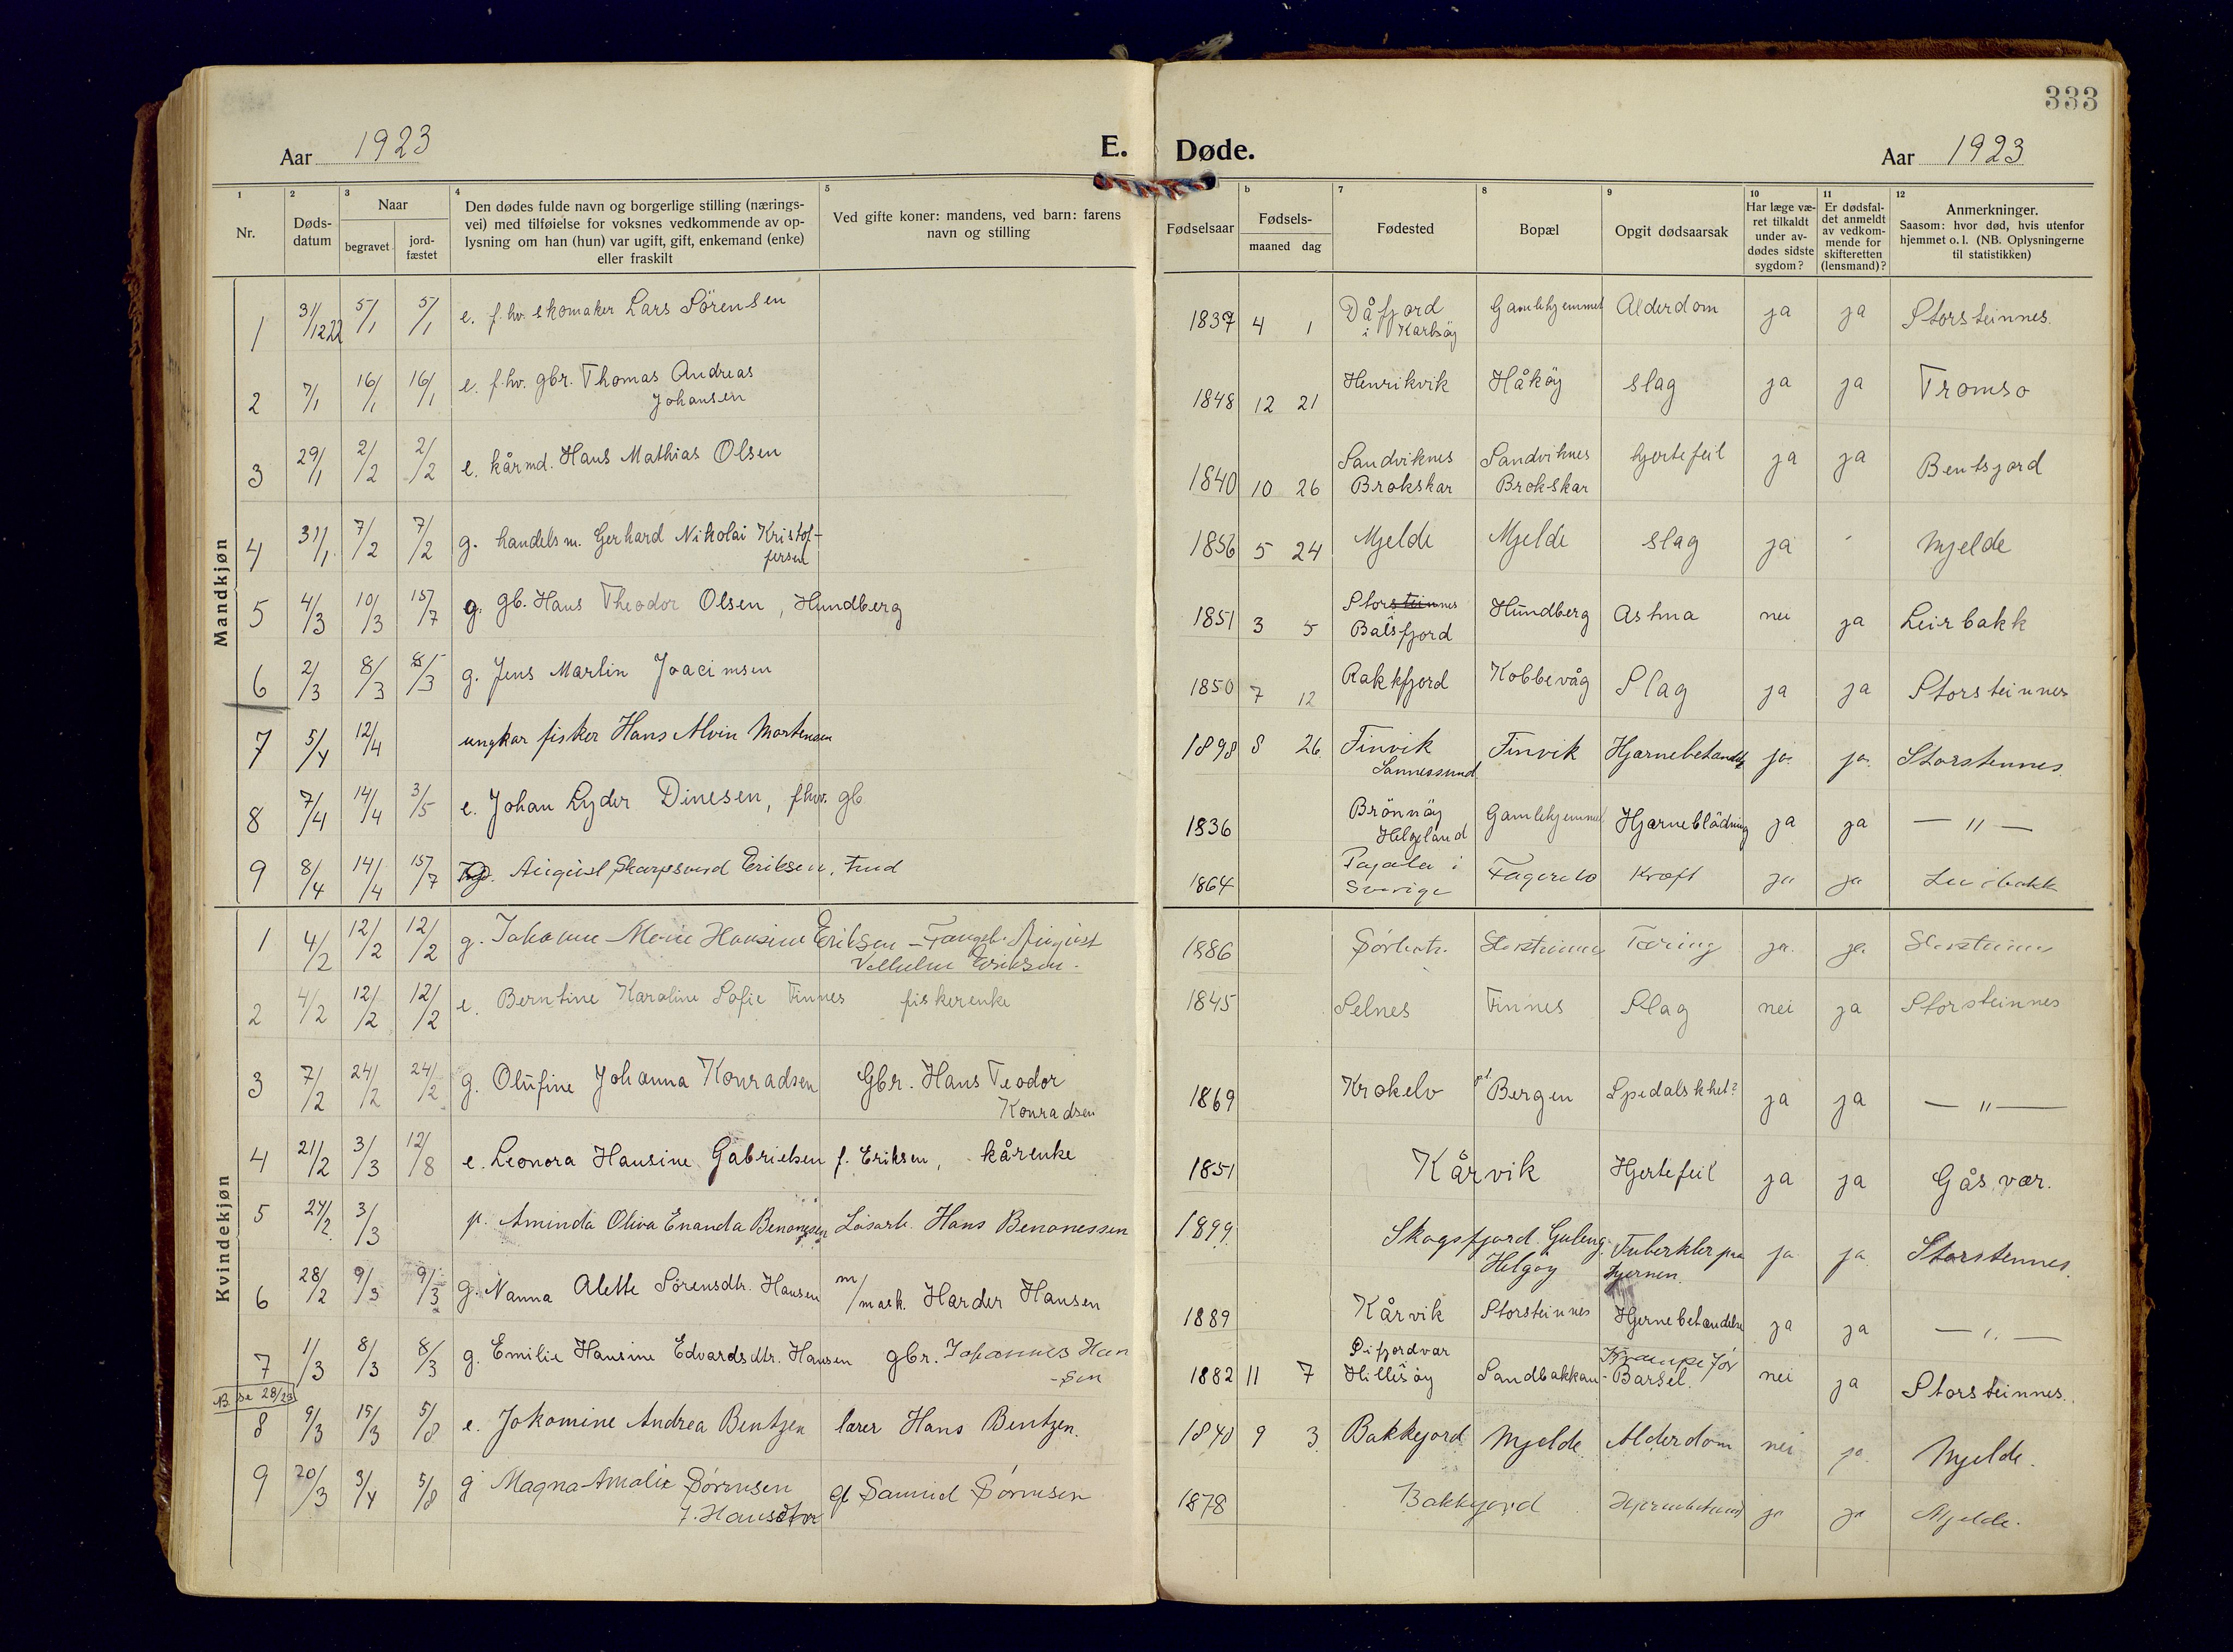 333
Aar 1923 E. Døde. Aar 1923
1 2 3 4 5 b 7 8 9 10 11 12
Nr. Døds-datum Naar begravet jord-fæstet Den dødes fulde navn og borgerlige stilling (nærings-vei) med tilføielse for voksnes vedkommende av op-lysning om han (hun) var ugift, gift, enkemand (enke) eller fraskilt Ved gifte koner: mandens, ved barn: farens navn og stilling Fødselsaar Fødsels- maaned dag Fødested Bopæl Opgit dødsaarsak Har læge væ-ret tilkaldt under av-dødes sidste sygdom? Er dødsfal-det anmeldt av vedkom-mende for skifteretten (lensmand)? Anmerkninger. Saasom: hvor død, hvis utenfor hjemmet o. l. (NB. Oplysningerne til statistikken)
Mandkjøn
1 31/12 22 5/1 5/1 e. f.hv. skomaker Lars Sörensen 1837 4 1 Dåfjord i Karlsöy Gamlehjemmet Alderdom ja ja Storsteinnes.
2 7/1 16/1 16/1 e. f.hv. gbr. Thomas Andreas Johansen 1848 12 21 Henrikvik Håköy slag ja ja Tromsö
3 29/1 2/2 2/2 e. kårmd. Hans Mathias Olsen 1840 10 26 Sandviknes Brokskar Sandviknes Brokskar hjertefeil ja ja Bentsjord
4 31/1 7/2 7/2 g. handelsm. Gerhard Nikolai Kristof-fersen 1856 5 24 Mjelde Mjelde slag ja Mjelde
5 4/3 10/3 15/7 g. gb. Hans Theodor Olsen, Hundberg 1851 3 5 Storsteinnes Balsfjord Hundberg Astma nei ja Leirbakk
6 2/3 8/3 8/3 g. Jens Martin Joacimsen 1850 7 12 Rakkfjord Kobbevåg Slag ja ja Storsteinnes
7 5/4 12/4 ungkar fisker Hans Alvin Mortensen 1898 8 26 Finvik Sannessund Finvik Hjernebetændelse ja ja Storstennes
8 7/4 14/4 3/5 e. Johan Lyder Dinesen, fhv. gb 1836 Brönnöy Helgeland Gamlehjemmet Hjerneblödning ja ja — " —
9 8/4 14/4 15/7 August Skarpsund Eriksen. 1864 Pajala i Sverige Kræft ja ja
Kvindekjøn
1 4/2 12/2 12/2 g. Hansine Eriksen – August Eriksen. 1886 Storsteinnes Tæring ja ja Storsteinnes
2 4/2 12/2 12/2 e. Berntine Karoline Sofie Finnes fiskerenke 1845 Selnes Finnes Slag nei ja Storsteinnes
3 7/2 24/2 24/2 g. Olufine Johanna Konradsen Gbr. Hans Teodor Konradsen 1869 Krokelv pt Bergen Spedalskhet? ja ja — " —
4 21/2 3/3 12/8 e. Leonora Hansine Gabrielsen f. Eriksen, kårenke 1851 Kårvik Hjertefeil ja ja Gåsvær.
5 24/2 3/3 p. Aminda Oliva Enanda Benonessen Lösarb. Hans Benonessen 1899 Skogsfjord Helgöy Tuberkler paa hjernen ja ja Storstennes
6 28/2 9/3 9/3 g. Nanna Alette Sörensdtr. Hansen m/mask. Harder Hansen 1889 Kårvik Storsteinnes Hjernebetændelse ja ja — " —
7 1/3 8/3 8/3 g. Emilie Hansine Edvardsdtr. Hansen gbr. Johannes Han-sen 1882 11 7 Hillesöy Sandbakkan Krampe for Barsel. nei ja Storsteinnes.
NB. se 28/23
8 9/3 15/3 5/8 e. Jokomine Andrea Bentzen lærer Hans Bentzen. 1840 9 3 Bakkejord Mjelde Alderdom nei ja Mjelde.
9 20/3 3/4 5/8 g Magna Amalie Sörensen f. Hansdtr gb Samuel Sörensen 1878 Bakkejord ja ja Mjelde.